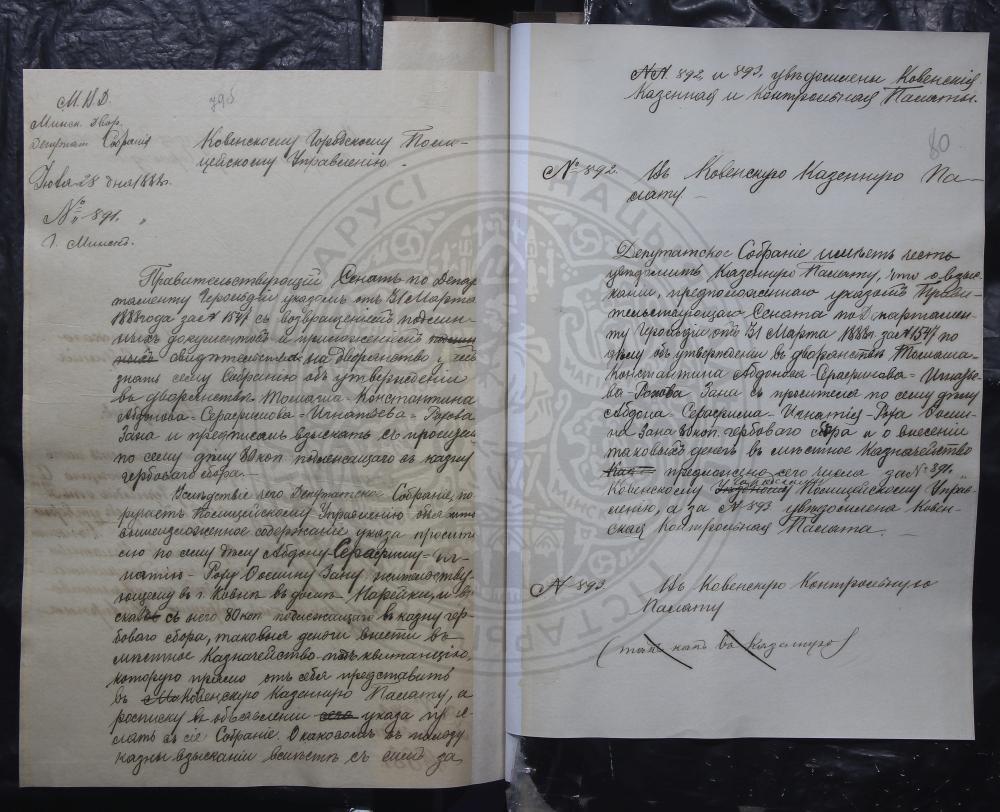 М.В.Д.
Минск. двор.
Депутат Собранія
Іюня 28 дня 1888г.
№ 891.
г. Минск.
798
Ковенскому Городскому Поли-
цейскому Управленію.
Правительствующій Сенатъ по Депар
таменту Герольдіи указомъ отъ 31 Марта
1888 года за № 1577 съ возвращеніемъ подлин-
ныхъ документовъ и приложеній
свидѣтельства на дворянство, далъ
знать сему Собранію объ утвержденіи
въ дворянствѣ Томаша-Константина
Абдонова-Серафимова-Игнатьева-Рохова
Зана и предписалъ взыскать съ просителя
по сему дѣлу 80 коп подлежащаго въ казну
гербоваго сбора.
Вслѣдствіе чего Депутатское Собраніе, по
ручаетъ Полицейскому Управленію объявить
вышеизложенное содержаніе указа просите
лю по сему дѣлу Абдону Серафиму-Иг-
натію-Роху Осипову Зану, жительству-
ющему въ г. Ковнѣ въ домѣ Марейки, и взы
скавъ съ него 80 коп подлежащаго въ казну гер-
боваго сбора, таковыя деньги внести въ
мѣстное Казначейство подъ квитанцію,
которую прямо отъ себя представить
въ Ковенскую Казенную Палату, а
росписку въ объявленіи указа при
слать въ сіе Собраніе. О каковомъ въ пользу
казны взысканіи вмѣстѣ съ симъ за
№№ 892 и 893, увѣдомлены Ковенскія
Казенная и Контрольная Палаты.
80
№ 892. Въ Ковенскую Казенную Па-
лату.
Депутатское Собраніе имѣетъ честь
увѣдомить Казенную Палату, что о взыс-
каніи, предположеннаго указомъ Прави-
тельствующаго Сената по Департамен-
ту Герольдіи отъ 31 Марта 1888г. за № 1577 по
дѣлу объ утвержденіи въ дворянствѣ Томаша-
Константина Абдонова-Серафимова-Игнатье-
ва-Рохова Зана съ просителя по сему дѣлу
Абдона Серафима-Игнатія-Роха Осипо-
на Зана 80 коп. гербоваго сбора и о внесеніи
таковыхъ денегъ въ мѣстное Казначейство
предложено сего числа за № 891.
Ковенскому Городскому Полицейскому Управ-
ленію, а за № 893 увѣдомлена Ковен-
ская Контрольная Палата.
№ 893. Въ Ковенскую Контрольную
Палату
(такъ какъ въ Казенную)